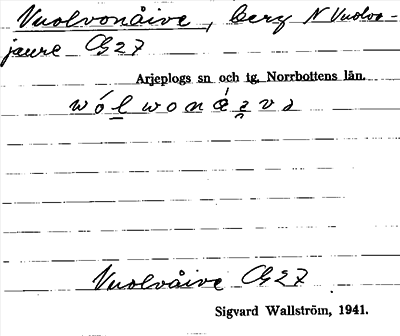 Vuolvonåive, berg N Vuolvo-
jaure G27
Arjeplogs sn och tg, Norrbottens län.
wólwonávə
Vuolvåive G27
Sigvard Wallström, 1941.